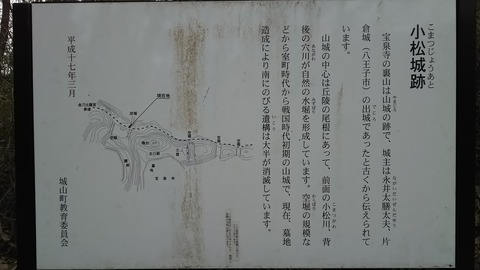 こまつじょうあと
小松城跡
宝泉寺の裏山は山城の跡で、城主は永井太膳太夫、片
倉城（八王子市）の出城であったと古くから伝えられて
います。
山城の中心は丘陵の尾根にあって、前面の小松川、背
後の穴川が自然の水堀を形成しています。空堀の規模な
どから室町時代から戦国時代初期の山城で、現在、墓地
造成により南にのびる遺構は大半が消滅しています。
現在地
平成十七年三月
城山町教育委員会